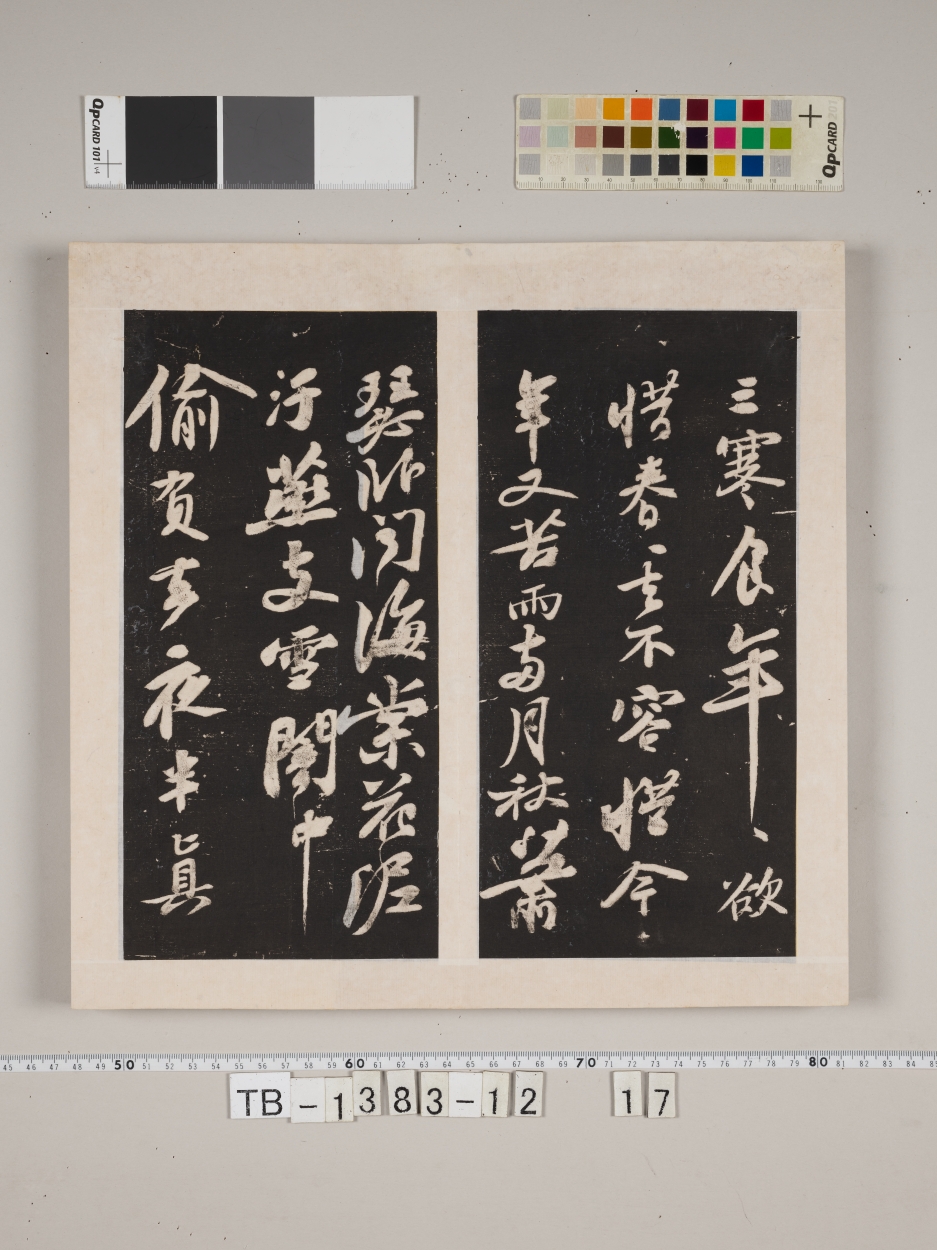 QpCARD 101 v4
QpCARD 201
三寒食年々欲
惜春々去不容惜今
年又苦雨兩月秋蕭
瑟卧聞海棠花泥
汙燕支雪闇中
偷負去夜半眞
45 46 47 48 49 50 51 52 53 54 55 56 57 58 59 60 61 62 63 64 65 66 67 68 69 70 71 72 73 74 75 76 77 78 79 80 81 82 83 84 85
TB-1383-12 17